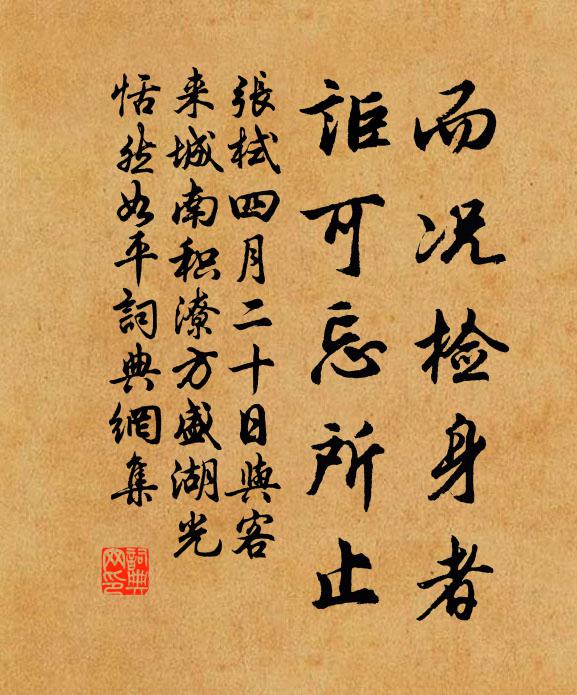 而况检身者
詎可忘所止
張栻四月二十日與客
来城南积潦方盛湖光
恬然如平詞典網集
詞典网印